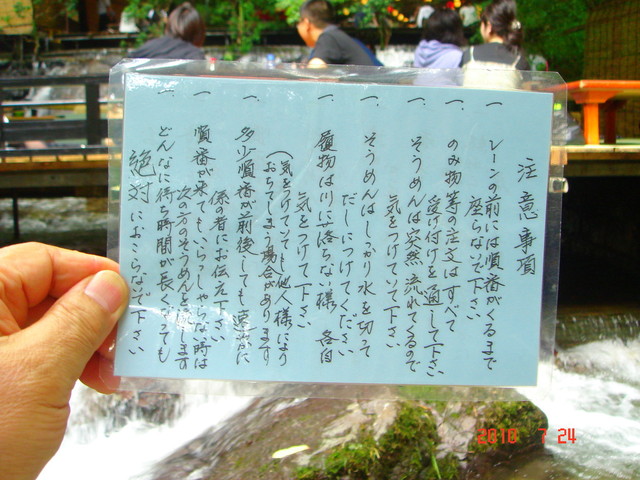 注意事項
一、レーンの前には順番がくるまで
座らないで下さい
一、のみ物等の注文はすべて
受け付けを通して下さい
一、そうめんは突然流れてくるので
気をつけていて下さい
一、そうめんはしっかり水を切って
だしにつけてください
一、履物は川に落ちない様各自
気をつけて下さい
(気をつけていても他人様により
おちてしまう場合があります
一、多少順番が前後しても
一、順番が来てもいらっしゃらない時は
係の者にお伝え下さい
次の方のそうめんを流します
一、どんなに待ち時間が長くなっても
絶対におこらないで下さい
2010 7 24